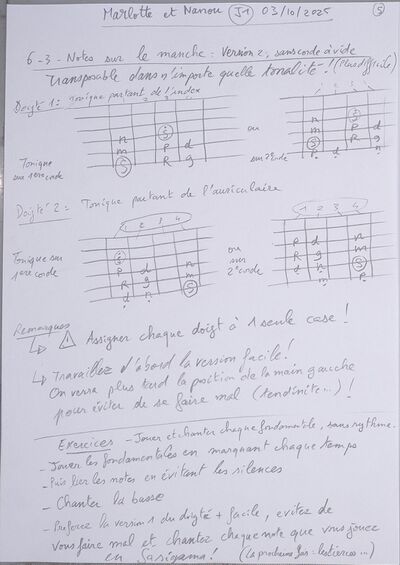 Marlotte et Nanou J1 03/10/2025 5
6-3- Notes sur le manche: Version 2, sans corde à vide
Transposable dans n'importe quelle tonalité! (Plus difficile)
Doigté 1: Tonique partant de l'index
n
m p d
S R g
Tonique sur 1ere corde
ou sur 2e corde
n
m p d
S R g
Doigté 2: Tonique partant de l'auriculaire
1 2 3 4
1 2 3 4
Tonique sur 1ere corde
p d
R g n
d n S
ou sur 2e corde
p d n
R g m
d n S
p
Remarques
Assigner chaque doigt à 1 seule case!
Travaillez d'abord la version facile!
On verra plus tard la position de la main gauche
pour éviter de se faire mal (tendinite...)!
Exercices - Jouer et chanter chaque fondamentale, sans rythme.
- Jouer les fondamentales en marquant chaque temps
- Puis lier les notes en évitant les silences
- Chanter la basse
- Préférez la version 1 du doigté + facile, évitez de
vous faire mal et chantez chaque note que vous jouez
en Sarigama! (la prochaine fois: